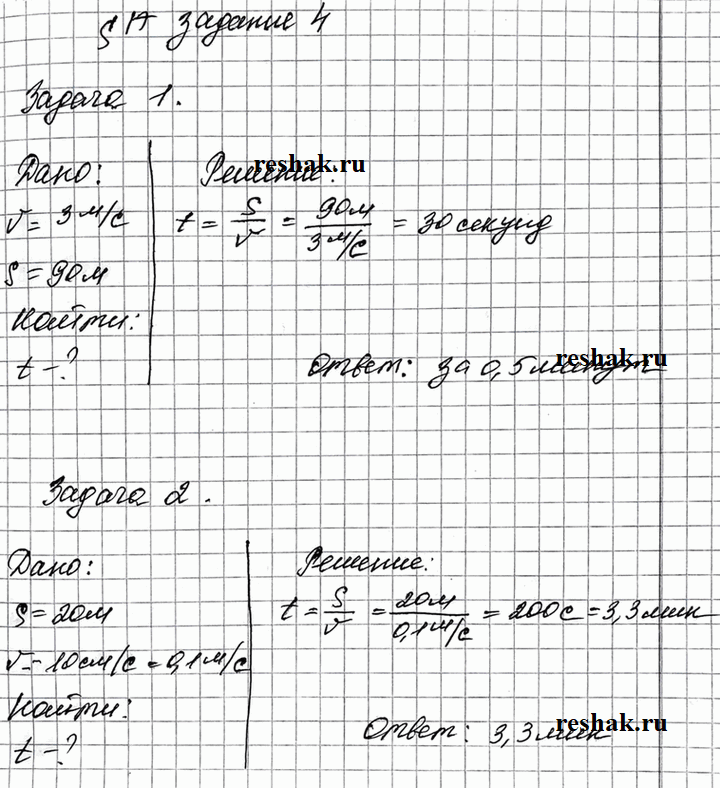 § 17 задание 4
Задача 1.
Дано:
v = 3 м/с
S = 90 м
Найти:
t - ?
Решение:
reshak.ru
t = S/v = 90 м/3 м/с = 30 секунд
Ответ: за 0,5 минут
reshak.ru
Задача 2.
Дано:
S = 20 м
v = 10 см/с = 0,1 м/с
Найти:
t - ?
Решение:
t = S/v = 20 м/0,1 м/с = 200 с = 3,3 мин
Ответ: 3,3 мин
reshak.ru